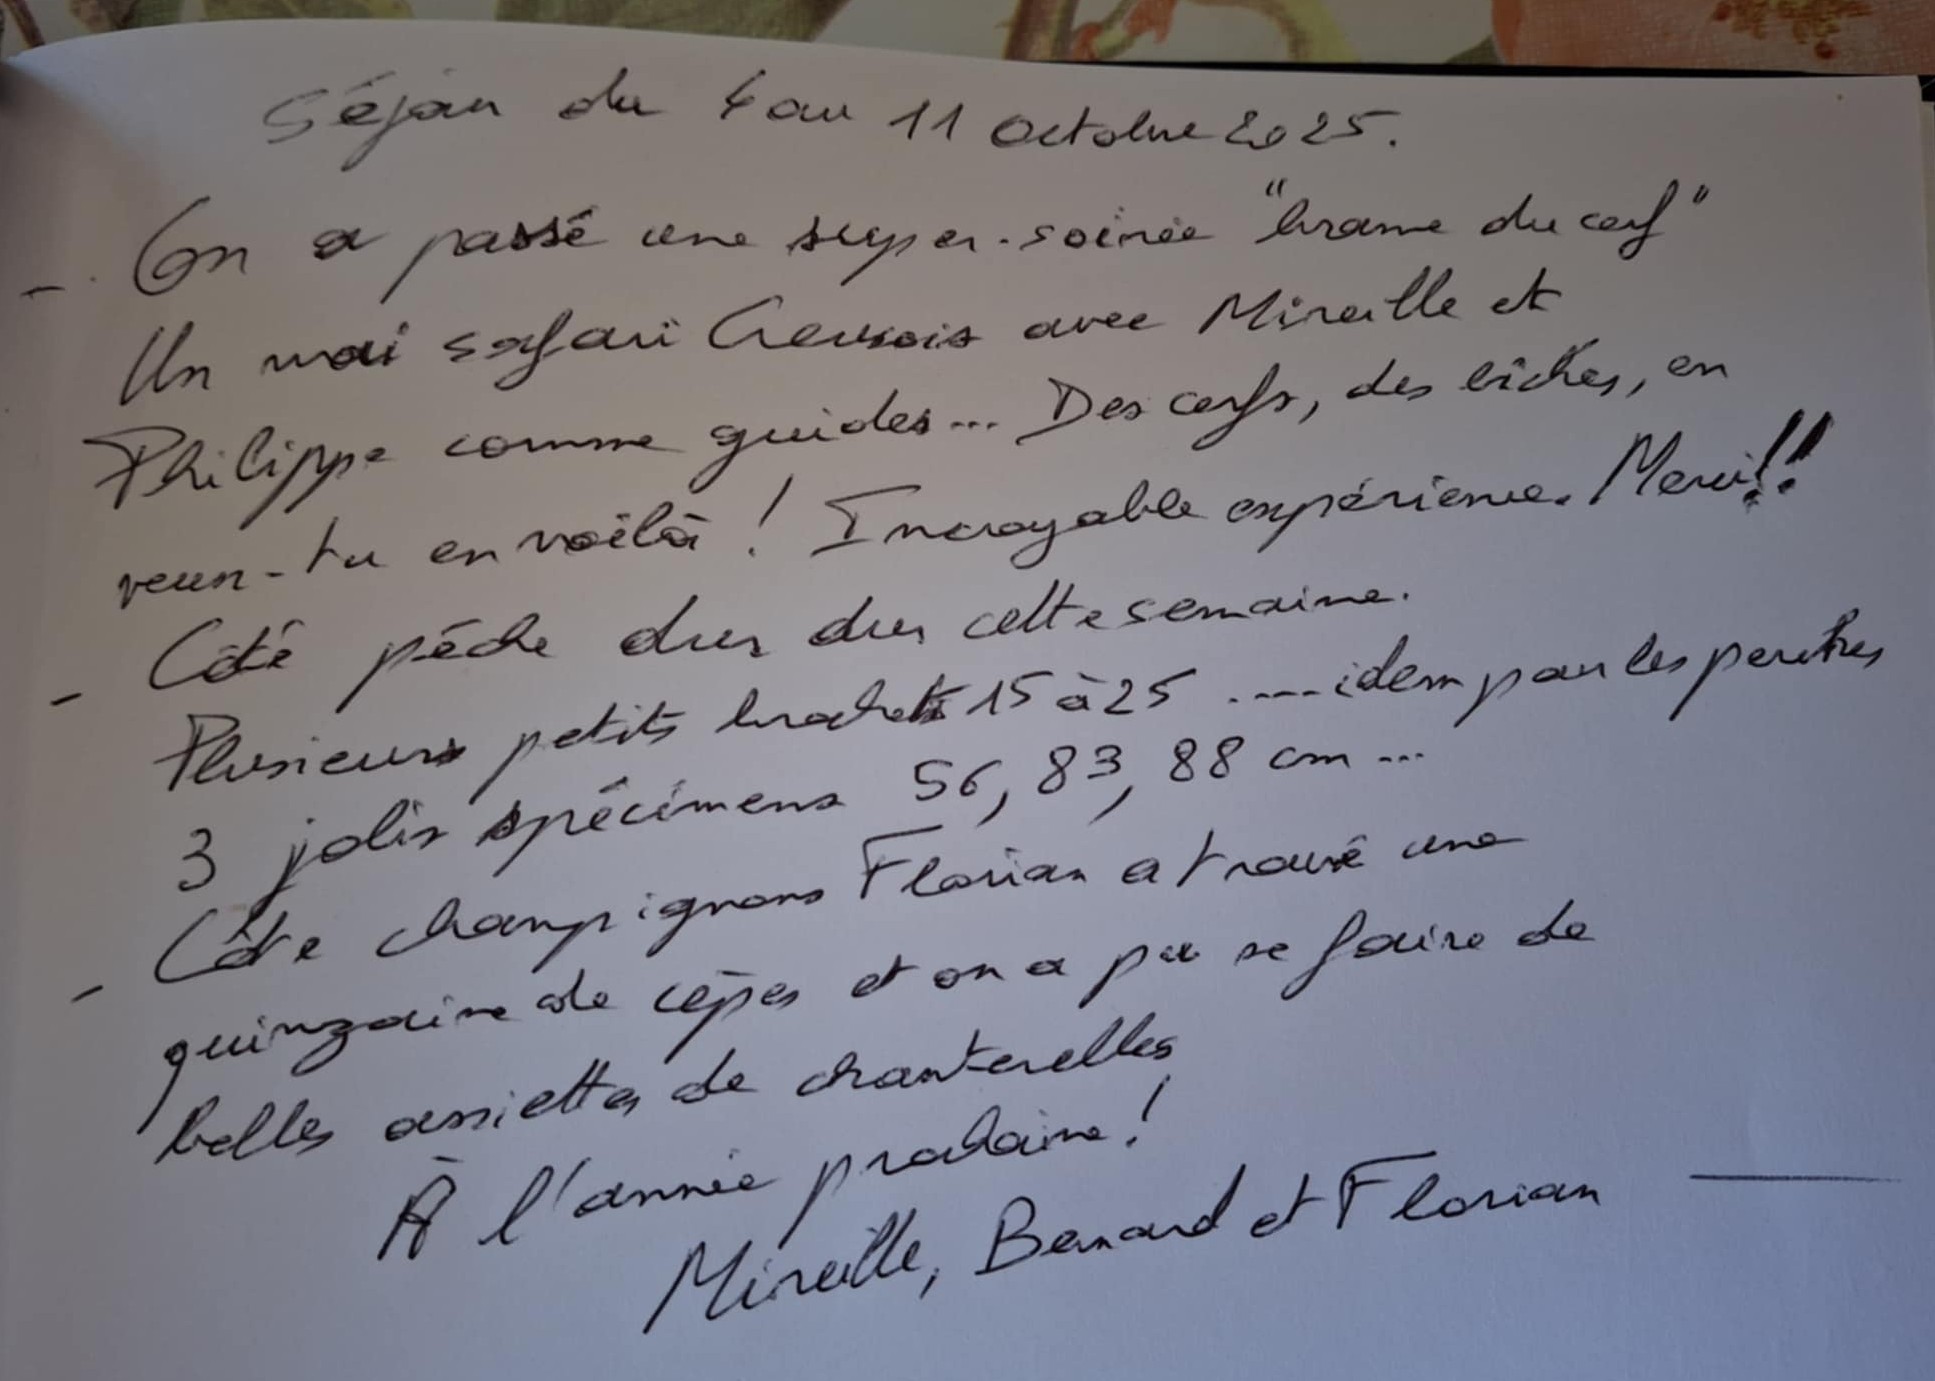 Séjour du 4 au 11 octobre 2025.
- On a passé une super-soirée "brame du cerf"
Un vrai safari Creusois avec Mireille et
Philippe comme guides... Des cerfs, des biches, en
veux-tu en voilà ! Incroyable expérience. Merci !!
- Côté pêche dur dur cette semaine.
Plusieurs petits brochets 15 à 25 ..... idem pour les perches
3 jolis spécimens 56, 83, 88 cm ...
- Côté champignons Florian a trouvé une
quinzaine de cèpes et on a pu se faire de
belles assiettes de chanterelles
À l'année prochaine !
Mireille, Bernard et Florian